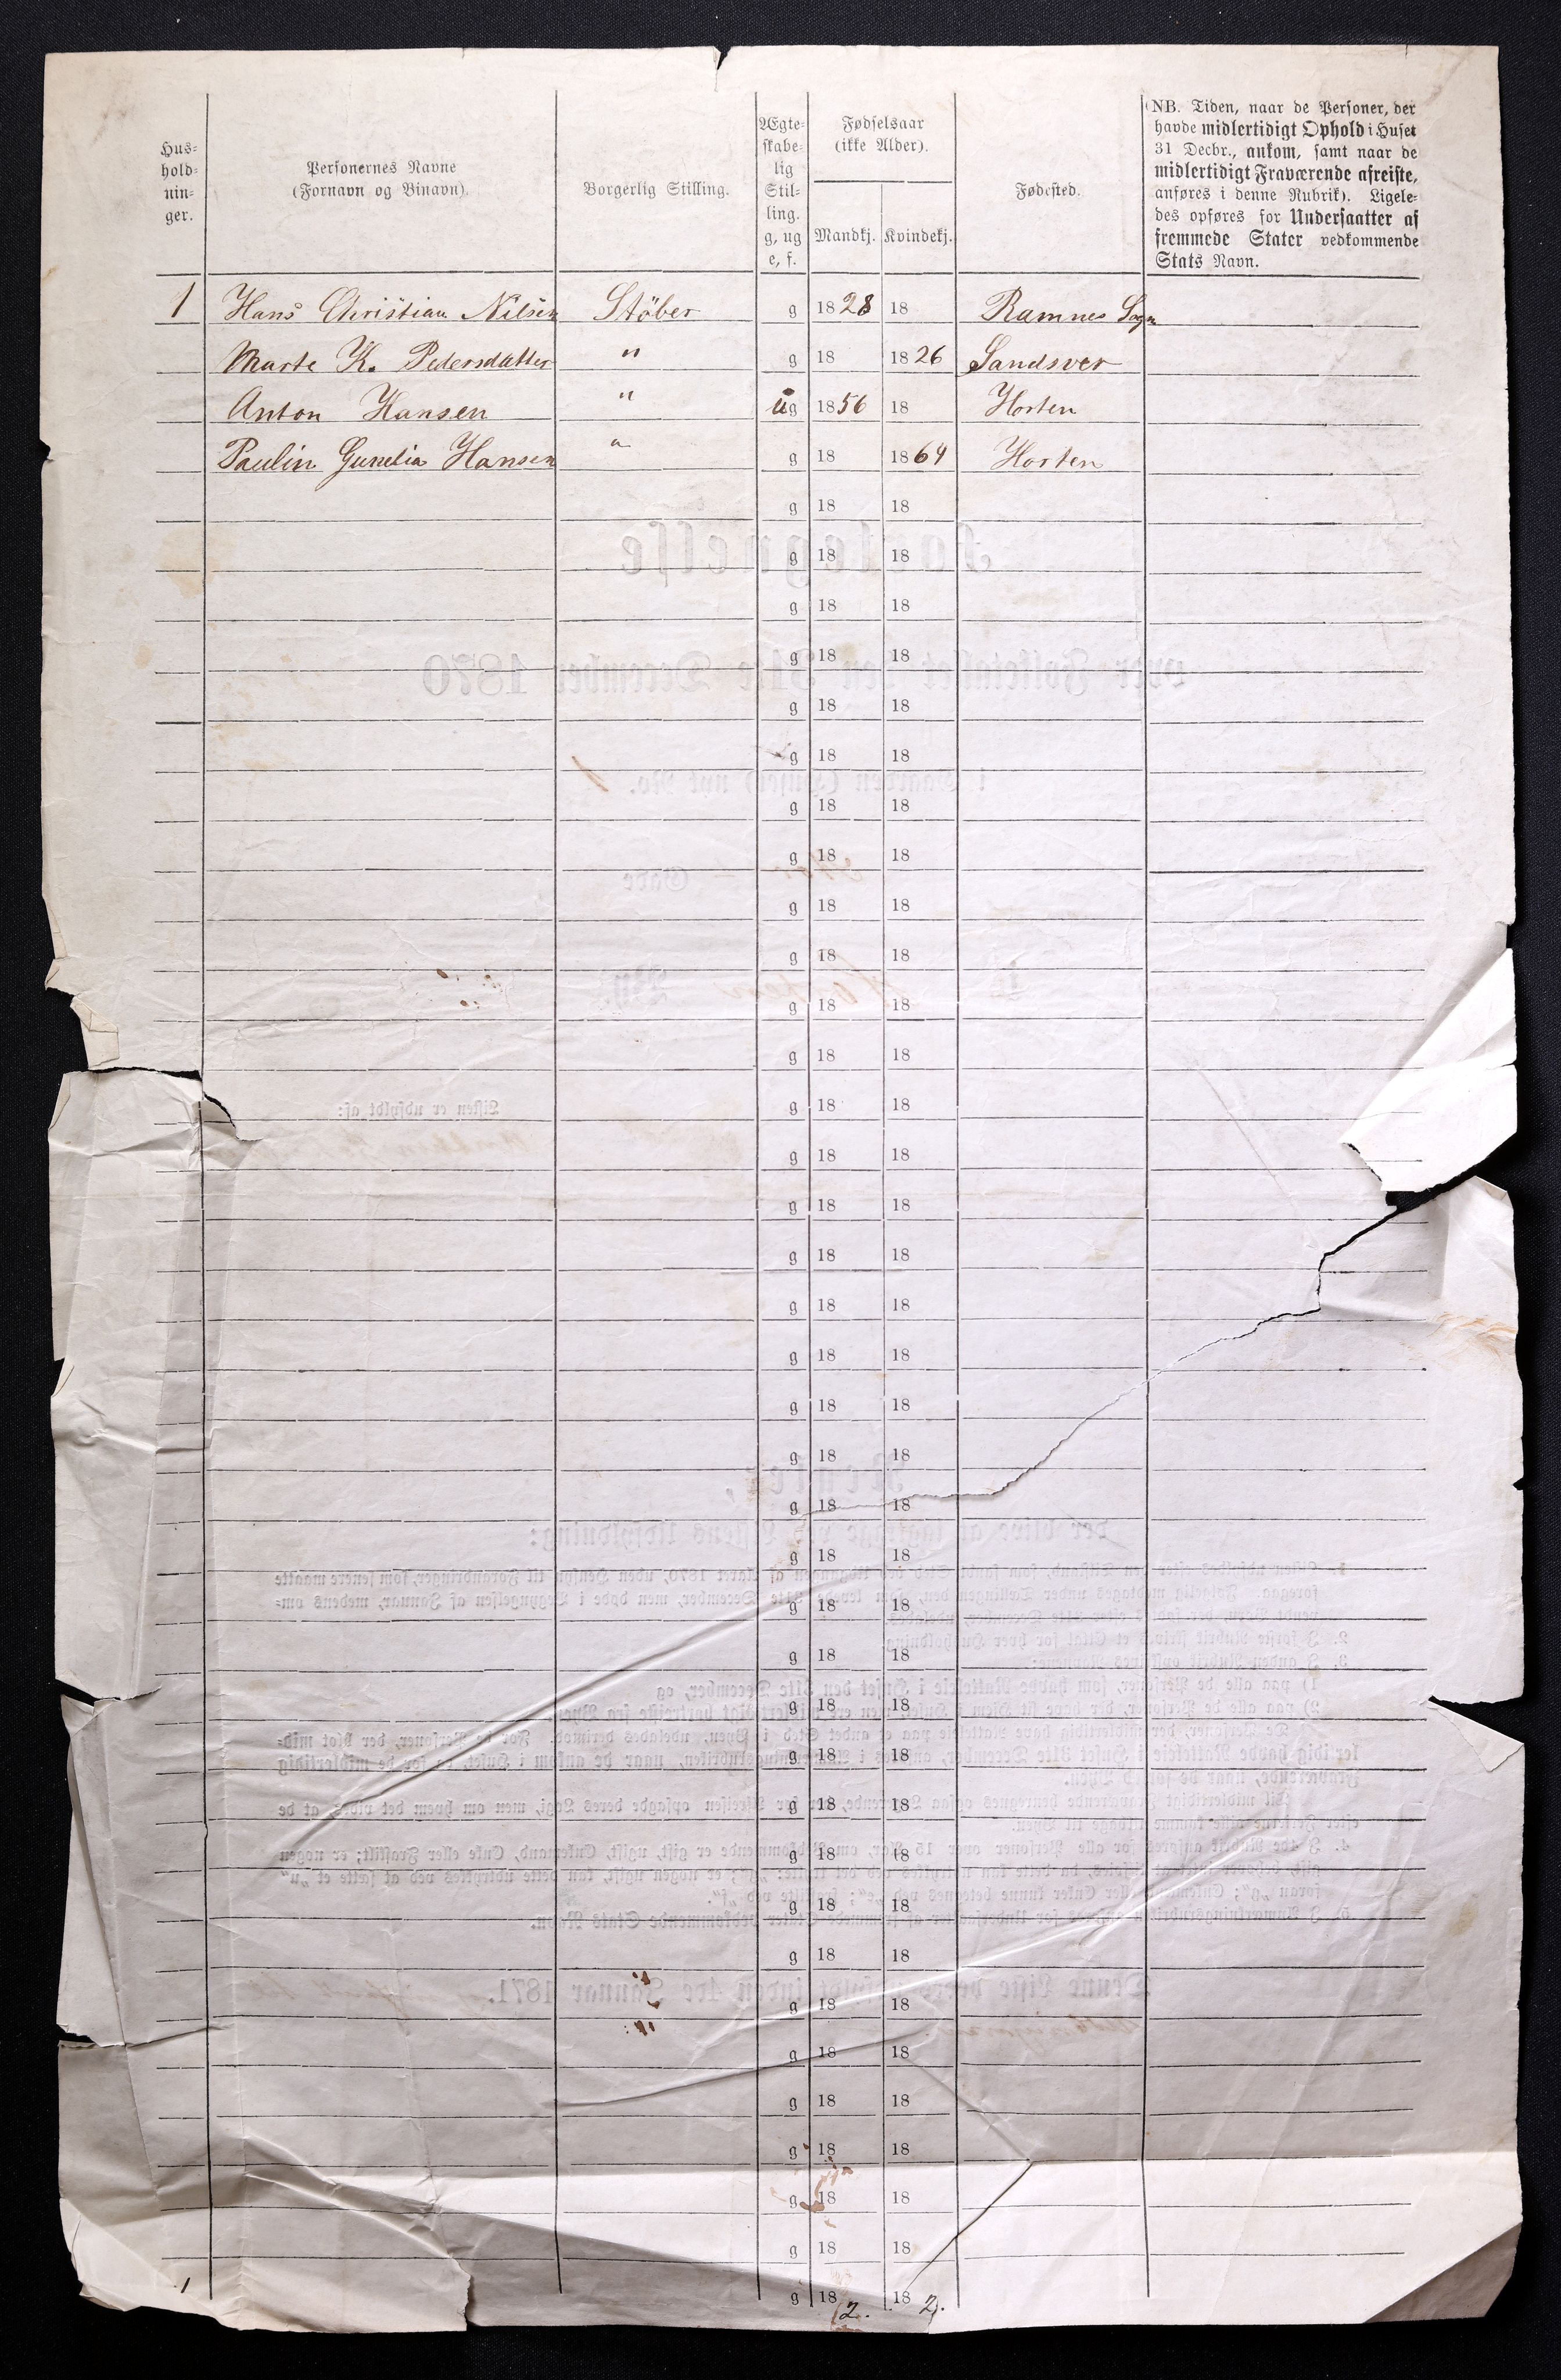 Hus-
hold-
nin-
ger.
Personernes Navne
(Fornavn og Binavn).
Borgerlig Stilling.
Ægte-
skabe-
lig
Stil-
ling.
g, ug
e, f.
Fødselsaar
(ikke Alder).
Mandkj. Kvindekj.
Fødested.
NB. Tiden, naar de Personer, der
havde midlertidigt Ophold i Huset
31 Decbr., ankom, samt naar de
midlertidigt Fraværende afreiste,
anføres i denne Rubrik). Ligele-
des opføres for Undersaatter af
fremmede Stater vedkommende
Stats Navn.
1 Hans Christian Nilsen Støber g 1828 18 Ramnes Sogn
Marte K. Pedersdatter " g 18 1826 Sandsver
Anton Hansen " ug 1856 18 Horten
Paulin Hansen " g 18 1864 Horten
g 18 18
g 18 18
g 18 18
g 18 18
g 18 18
g 18 18
g 18 18
g 18 18
g 18 18
g 18 18
g 18 18
g 18 18
g 18 18
g 18 18
g 18 18
g 18 18
g 18 18
g 18 18
g 18 18
g 18 18
g 18 18
g 18 18
g 18 18
g 18 18
g 18 18
g 18 18
g 18 18
g 18 18
g 18 18
g 18 18
g 18 18
g 18 18
g 18 18
g 18 18
g 18 18
g 18 18
g 18 18
1 2. 2.